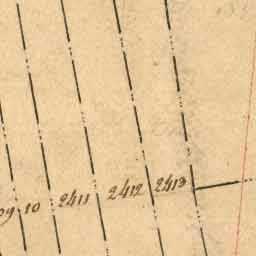 09 10 2411 2412 2413